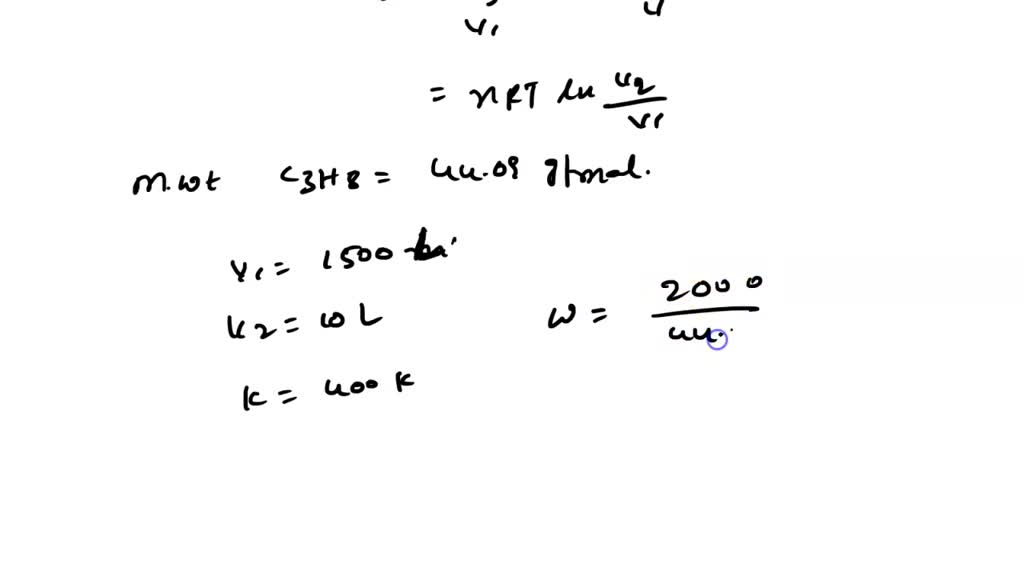 V1
= nRT ln V2/V1
m.wt C3H8 = 44.09 g/mol.
V1 = 1500
V2 = 10 L
w = 2000/44.
K = 400 K